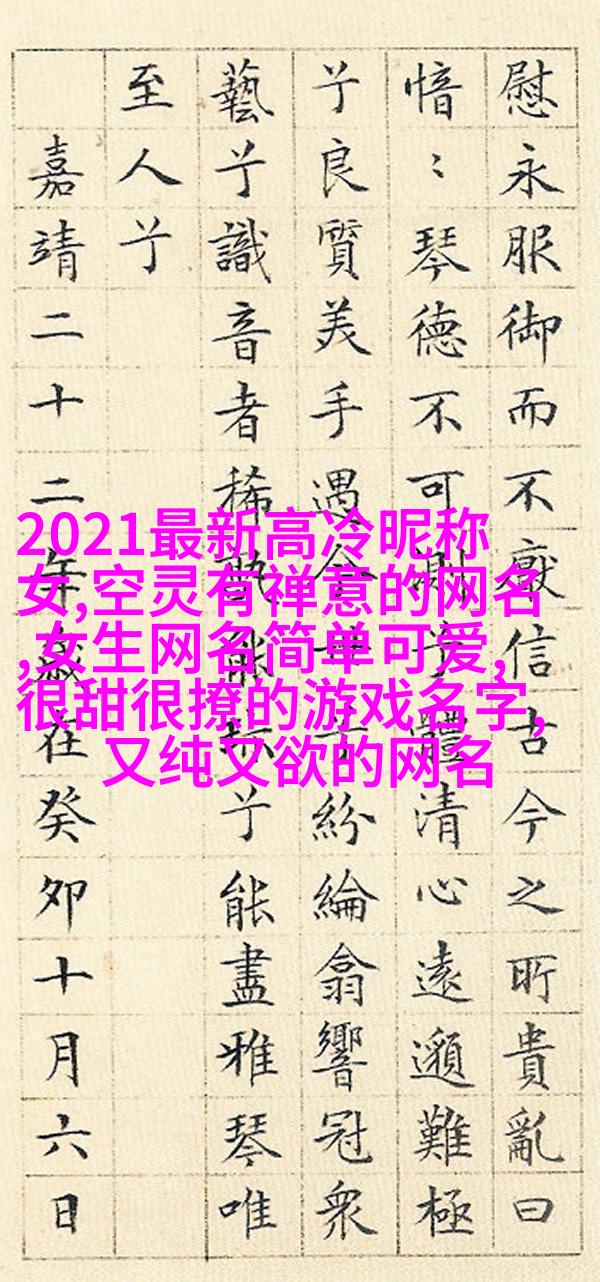 慰永服御而不厭信古今之所貴亂曰
愔〻琴德不可測兮體清心遠邈難極
兮良質美手遇今世兮紛綸翕響冠衆
藝兮識音者稀孰能珍兮能盡雅琴唯
至人兮
嘉靖二十二年歲在癸卯十月六日
2021最新高冷昵称
女,空灵有禅意的网名
,女生网名简单可爱,
很甜很撩的游戏名字,
又纯又欲的网名